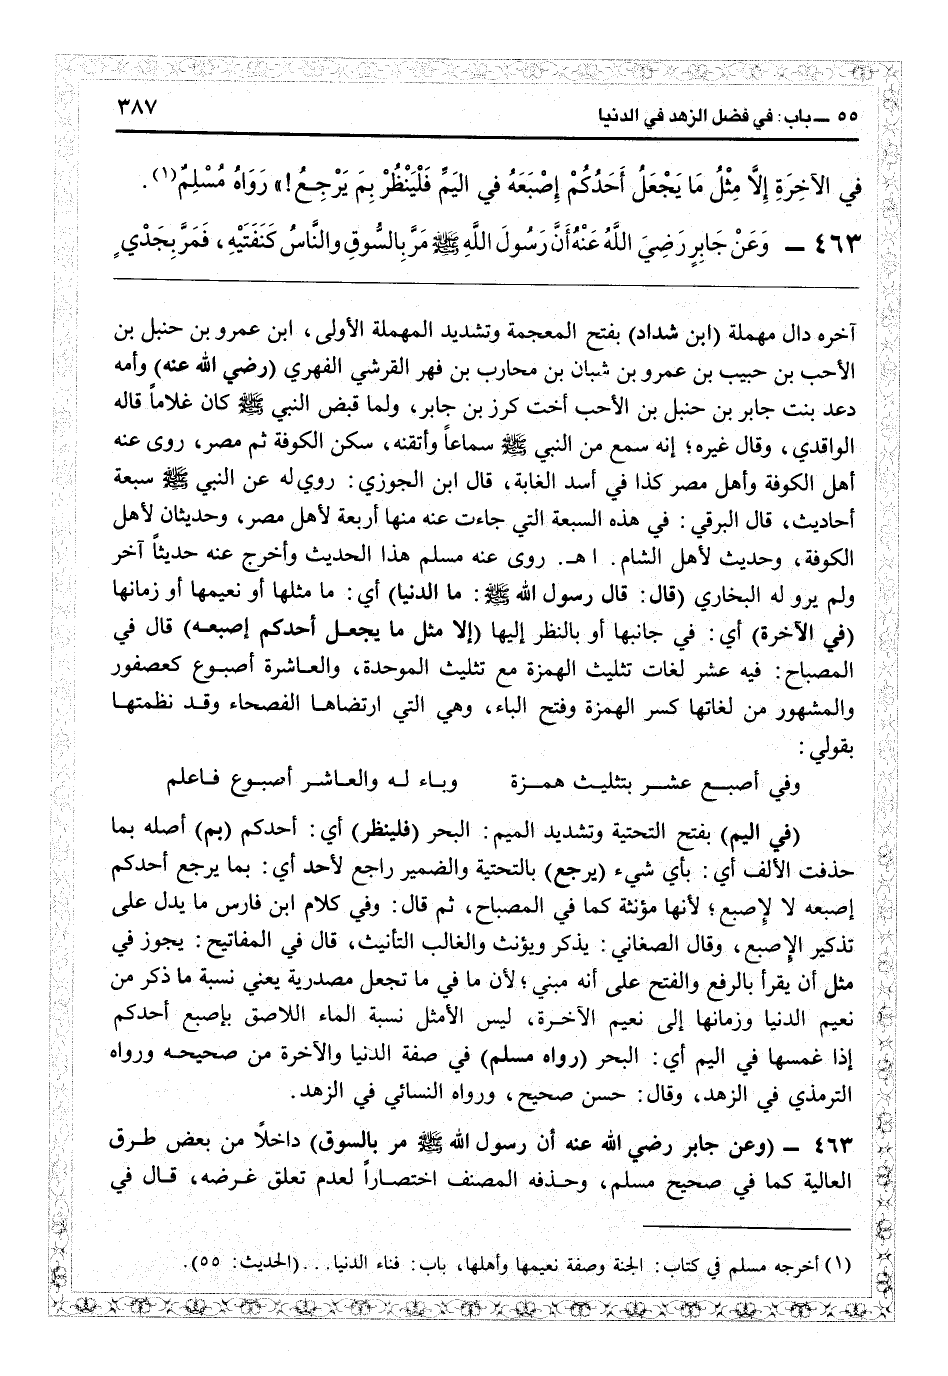 ٥٥ ــ باب: في فضل الزهد في الدنيا ٣٨٧
في الآخِرَةِ إِلَّا مِثْلُ مَا يَجْعَلُ أَحَدُكُمْ إِصْبَعَهُ في اليَمِّ فَلْيَنْظُرْ بِمَ يَرْجِعُ!» رَوَاهُ مُسْلِمٌ(١).
٤٦٣ ــ وَعَنْ جَابِرٍ رَضِيَ اللَّهُ عَنْهُ أَنَّ رَسُولَ اللَّهِ ﷺ مَرَّ بِالسُّوقِ والنَّاسُ كَنَفَتَيْهِ، فَمَرَّ بِجَدْيٍ
آخره دال مهملة (ابن شداد) بفتح المعجمة وتشديد المهملة الأولى، ابن عمرو بن حنبل بن
الأحب بن حبيب بن عمرو بن شبان بن محارب بن فهر القرشي الفهري (رضي الله عنه) وأمه
دعد بنت جابر بن حنبل بن الأحب أخت كرز بن جابر، ولما قبض النبي ﷺ كان غلاماً قاله
الواقدي، وقال غيره؛ إنه سمع من النبي ﷺ سماعاً وأتقنه، سكن الكوفة ثم مصر، روى عنه
أهل الكوفة وأهل مصر كذا في أسد الغابة، قال ابن الجوزي: روي له عن النبي ﷺ سبعة
أحاديث، قال البرقي: في هذه السبعة التي جاءت عنه منها أربعة لأهل مصر، وحديثان لأهل
الكوفة، وحديث لأهل الشام. اهـ. روى عنه مسلم هذا الحديث وأخرج عنه حديثاً آخر
ولم يرو له البخاري (قال: قال رسول الله ﷺ: ما الدنيا) أي: ما مثلها أو نعيمها أو زمانها
(في الآخرة) أي: في جانبها أو بالنظر إليها (إلا مثل ما يجعل أحدكم إصبعه) قال في
المصباح: فيه عشر لغات تثليث الهمزة مع تثليث الموحدة، والعاشرة أصبوع كعصفور
والمشهور من لغاتها كسر الهمزة وفتح الباء، وهي التي ارتضاها الفصحاء وقد نظمتها
بقولي:
وفي أصبع عشر بتثليث همزة وباء له والعاشر أصبوع فاعلم
(في اليم) بفتح التحتية وتشديد الميم: البحر (فلينظر) أي: أحدكم (بم) أصله بما
حذفت الألف أي: بأي شيء (يرجع) بالتحتية والضمير راجع لأحد أي: بما يرجع أحدكم
إصبعه لا لإصبع؛ لأنها مؤنثة كما في المصباح، ثم قال: وفي كلام ابن فارس ما يدل على
تذكير الإصبع، وقال الصغاني: يذكر ويؤنث والغالب التأنيث، قال في المفاتيح: يجوز في
مثل أن يقرأ بالرفع والفتح على أنه مبني؛ لأن ما في ما تجعل مصدرية يعني نسبة ما ذكر من
نعيم الدنيا وزمانها إلى نعيم الآخرة، ليس الأمثل نسبة الماء اللاصق بإصبع أحدكم
إذا غمسها في اليم أي: البحر (رواه مسلم) في صفة الدنيا والآخرة من صحيحه ورواه
الترمذي في الزهد، وقال: حسن صحيح، ورواه النسائي في الزهد.
٤٦٣ ــ (وعن جابر رضي الله عنه أن رسول الله ﷺ مر بالسوق) داخلاً من بعض طرق
العالية كما في صحيح مسلم، وحذفه المصنف اختصاراً لعدم تعلق غرضه، قال في
(١) أخرجه مسلم في كتاب: الجنة وصفة نعيمها وأهلها، باب: فناء الدنيا... (الحديث: ٥٥).